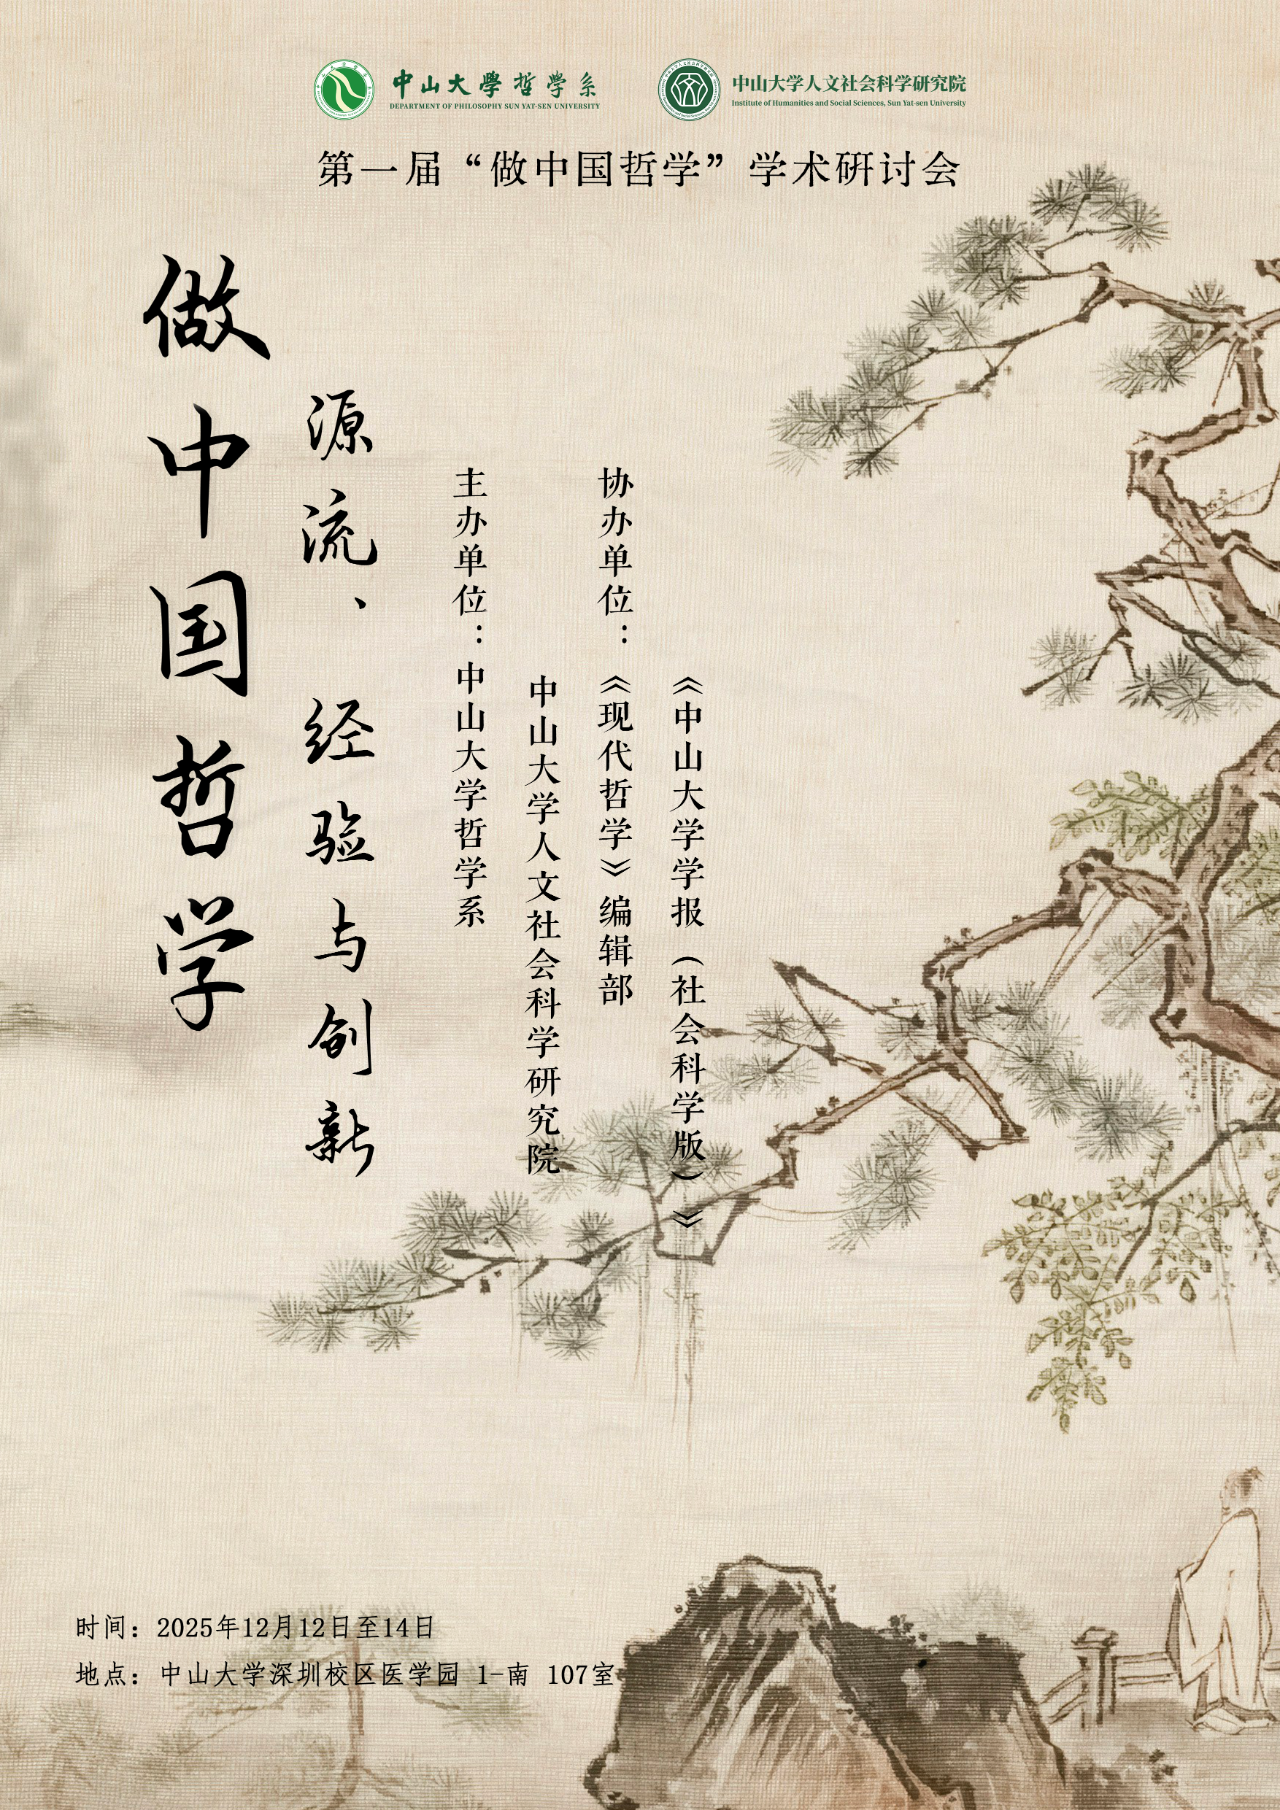 中山大學哲学系
DEPARTMENT OF PHILOSOPHY SUN YAT-SEN UNIVERSITY
中山大学人文社会科学研究院
Institute of Humanities and Social Sciences, Sun Yat-sen University
第一届“做中国哲学”学术研讨会
做中国哲学
源流、经验与创新
主办单位：中山大学哲学系
中山大学人文社会科学研究院
协办单位：《现代哲学》编辑部
《中山大学学报（社会科学版）》
时间：2025年12月12日至14日
地点：中山大学深圳校区医学园 1-南 107室